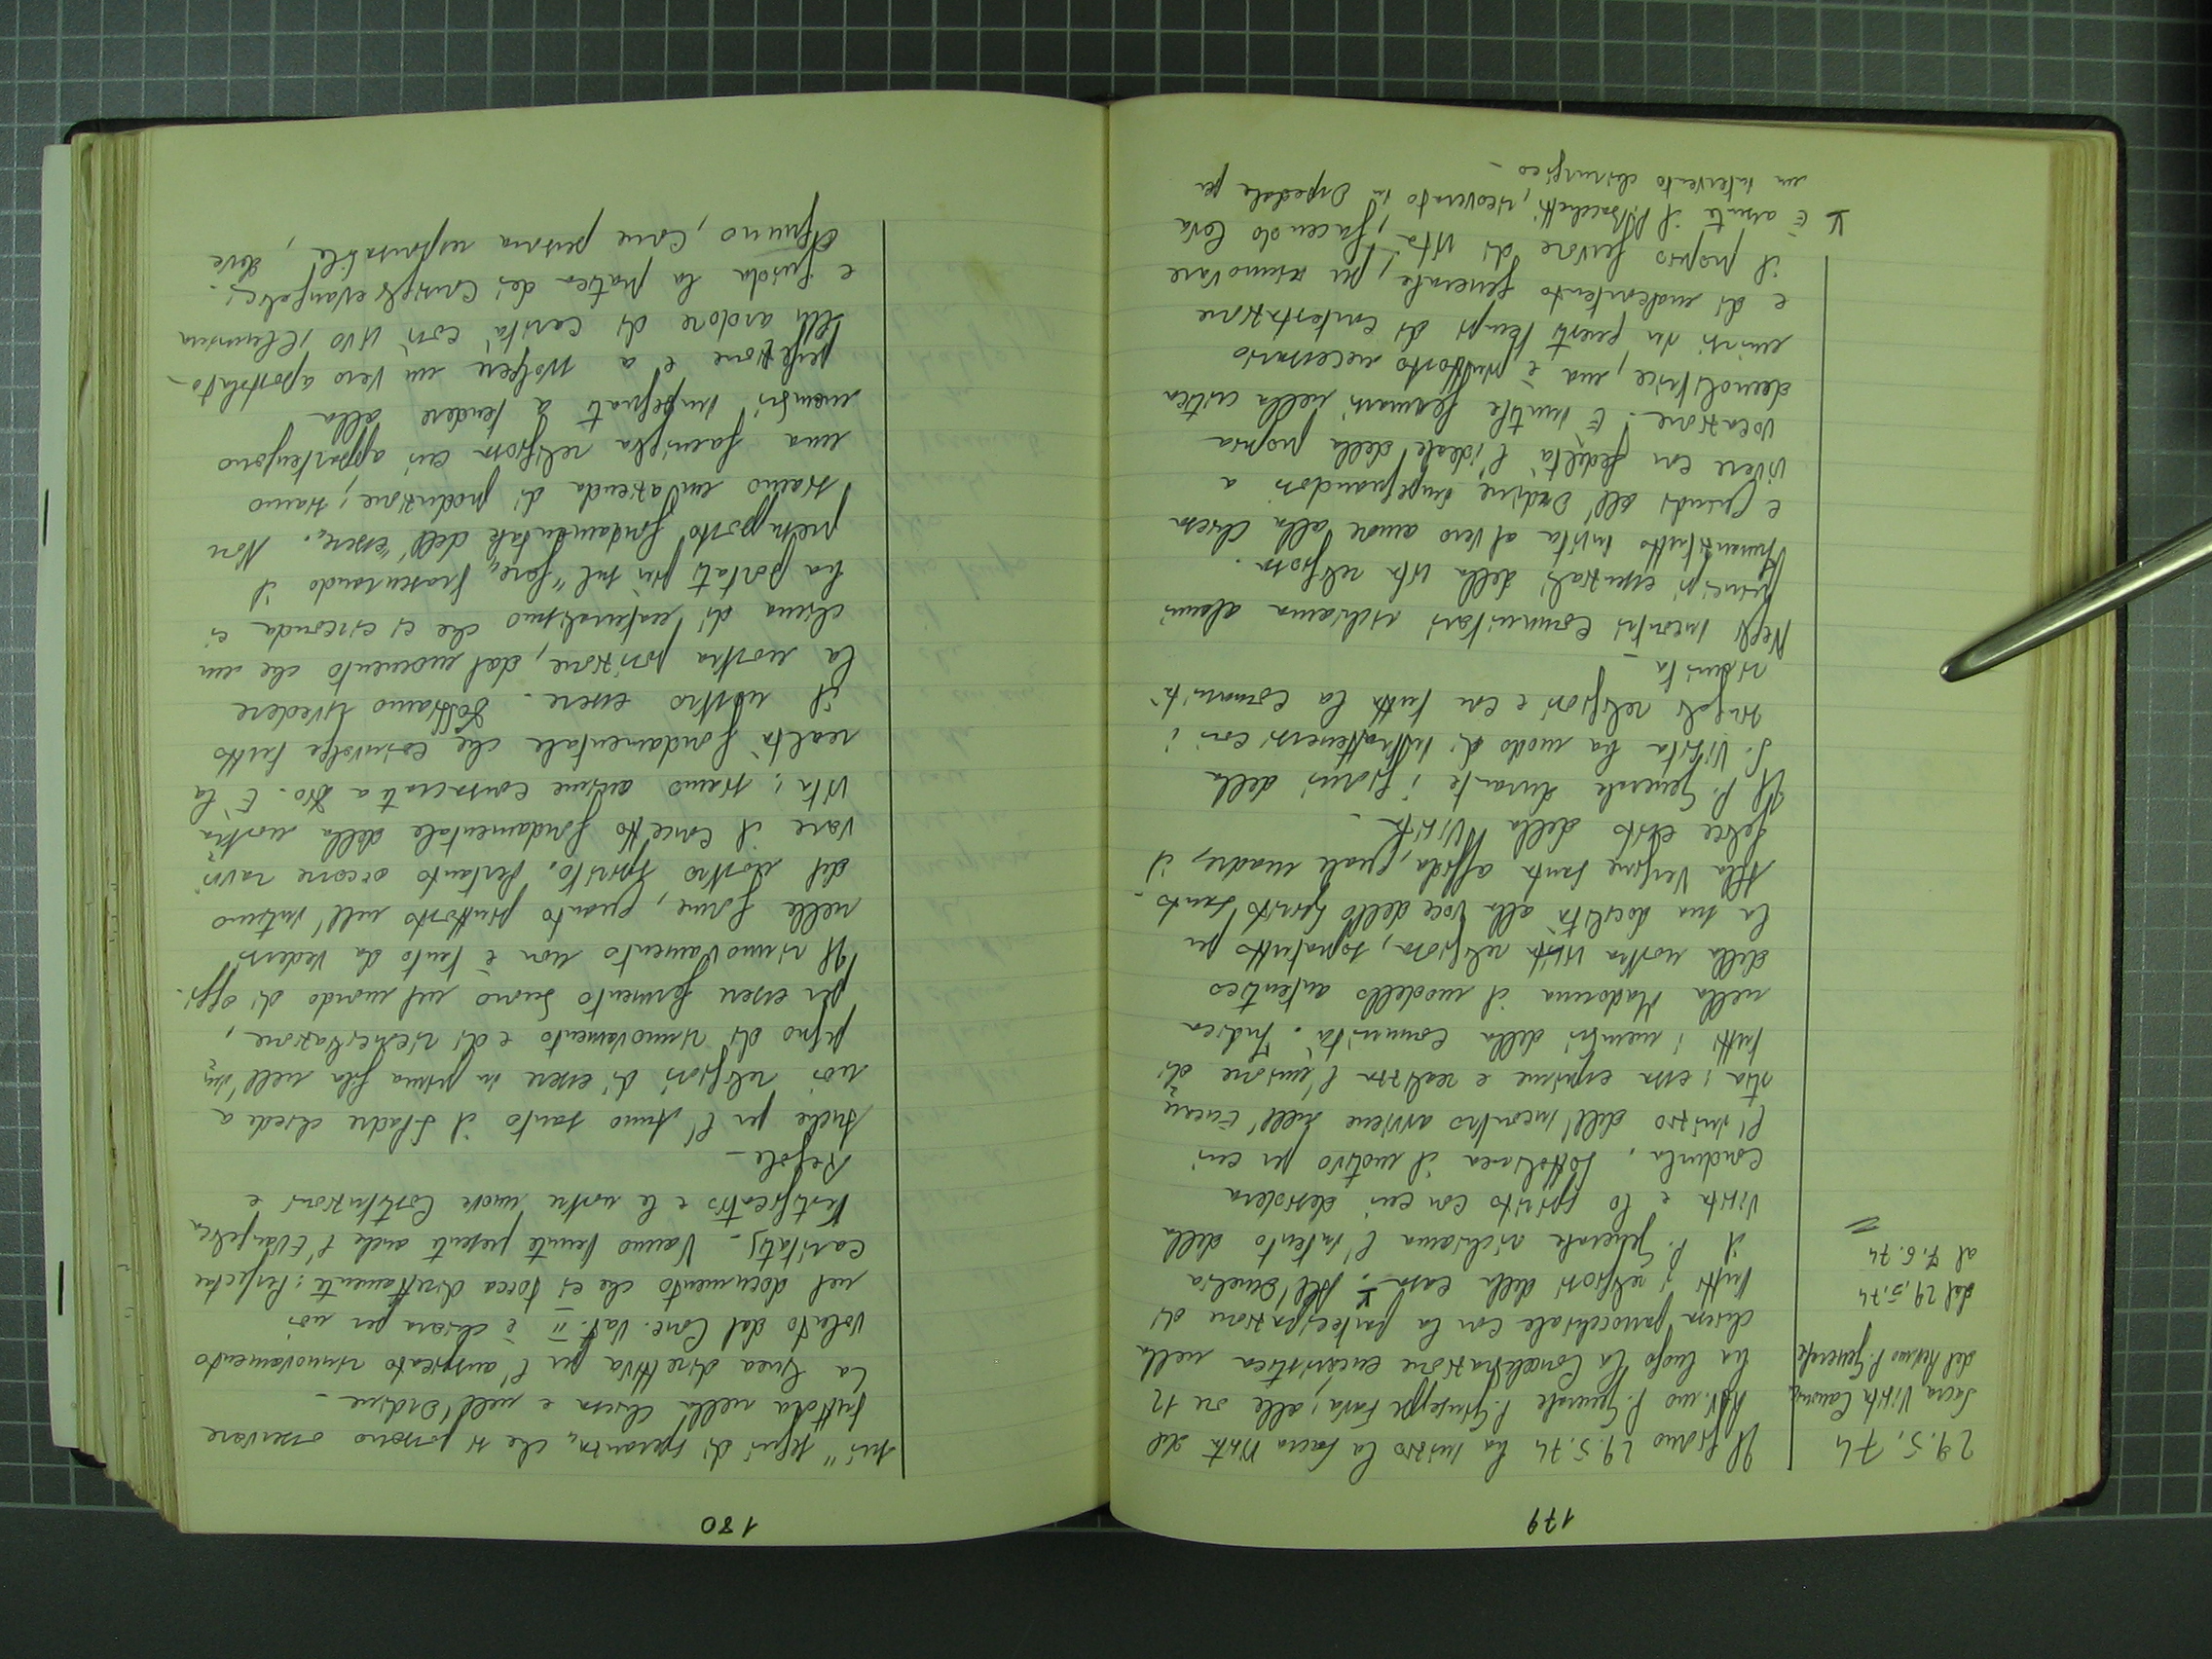 179
29.5.74
Sacra Visita Canonica
del Rev.mo P. Generale
dal 29.5.74
al 7.6.74
Il giorno 29.5.74 ha inizio la Sacra Visita del
Rev.mo P. Generale P. Giuseppe Fava; alle ore 12
ha luogo la Concelebrazione eucaristica nella
chiesa parrocchiale con la partecipazione di
tutti i religiosi della casa. All'Omelia
il P. Generale richiama l'intento della
Visita e lo spirito con cui desidera
condurla. Sottolinea il motivo per cui
l'inizio dell'incontro avviene nell'Eucari-
stia; essa esprime e realizza l'unione di
tutti i membri della Comunità. Indica
nella Madonna il modello autentico
della nostra vita religiosa, soprattutto per
la sua docilità alla voce dello Spirito Santo.
Alla Vergine Santa affida, quale madre, il
felice esito della Visita.
Il P. Generale durante i giorni della
S. Visita ha modo di intrattenersi con i
singoli religiosi e con tutta la Comunità
riunita _
Negli incontri comunitari richiama alcuni
principi essenziali della vita religiosa.
Innanzitutto invita al vero amore alla Chiesa
e quindi all'Ordine impegnandosi a
vivere con fedeltà l'ideale della propria
vocazione. È inutile fermarsi nella critica
demolitrice, ma è piuttosto necessario
unirsi in questi tempi di contestazione
e di malcontento generale, per rinnovare
il proprio fervore di vita, facendo leva
È assente il P. Sacchetti, ricoverato in Ospedale per
un intervento chirurgico -
180
sui "segni di speranza" che si possono osservare
tuttora nella Chiesa e nell'Ordine -
La linea direttiva per l'auspicato rinnovamento
voluto dal Conc. Vat. II è chiara per noi
nel documento che ci tocca direttamente: Perfectae
caritatis - Vanno tenute presenti anche l'Evangelica
Testificatio e le nostre nuove Costituzioni e
Regole -
Anche per l'Anno Santo il S. Padre chiede a
noi religiosi di essere in prima fila nell'im-
pegno di rinnovamento e di riconciliazione,
per essere fermento buono nel mondo di oggi.
Il rinnovamento non è tanto da vedersi
nelle forme, quanto piuttosto nell'intimo
del nostro spirito. Pertanto occorre ravvi-
vare il concetto fondamentale della nostra
vita; siamo anime consacrate a Dio. È la
realtà fondamentale che coinvolge tutto
il nostro essere. Dobbiamo rivedere
la nostra posizione, dal momento che un
clima di naturalismo che ci circonda ci
ha portati più sul "fare", trascurando il
presupposto fondamentale dell'"essere". Non
siamo un'azienda di produzione; siamo
una famiglia religiosa cui appartengono
membri impegnati a tendere alla
perfezione e a svolgere un vero apostolato -
Nell'ardore di carità con vivo
e guida la pratica dei Consigli evangelici.
Ognuno, come persona responsabile, deve